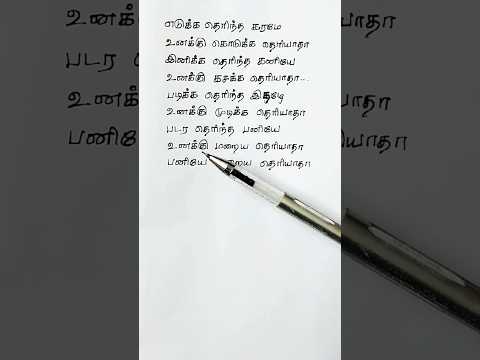 எடுக்க தெரிந்த கரமே
உனக்கு கொடுக்க தெரியாதா
இனிக்க தெரிந்த கனியே
உனக்கு கசக்க தெரியாதா...
படிக்க தெரிந்த இதழே
உனக்கு முடிக்க தெரியாதா
படர தெரிந்த பனியே
உனக்கு மறைய தெரியாதா
பனியே தெரியாதா